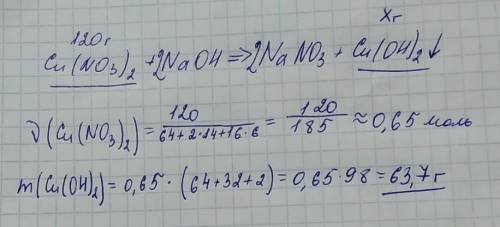 120г xг
Cu(NO₃)₂ + 2NaOH => 2NaNO₃ + Cu(OH)₂↓
ν(Cu(NO₃)₂) = 120/(64+2·14+16·6) = 120/185 ≈ 0,65 моль
m(Cu(OH)₂) = 0,65 · (64+32+2) = 0,65·98 = 63,7 г